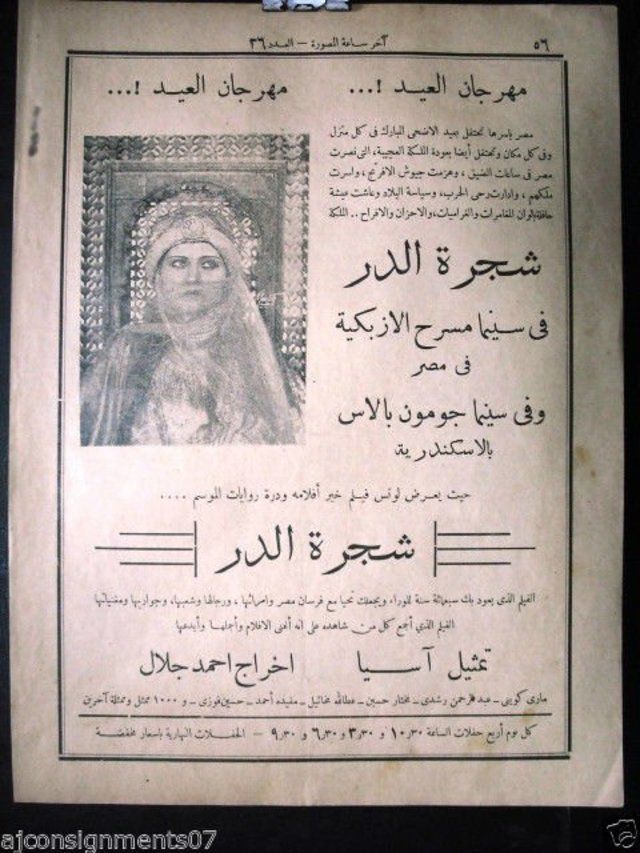 ٥٦
آخر ساعة المصورة — العدد ٣٦
مهرجان العيد !...
مهرجان العيد !...
مصر بأسرها تحتفل بعيد الاضحى المبارك فى كل منزل
وفى كل مكان وتحتفل أيضا بعودة الملكة العجيبة، التى نصرت
مصر فى ساعات الضيق، وهزمت جيوش الافرنج، واسرت
ملكهم، وادارت رحى الحرب، وسياسة البلاد وعاشت عيشة
حافلة بألوان المغامرات والغراميات، والاحزان والافراح .. الملكة
شجرة الدر
فى سينما مسرح الازبكية
فى مصر
وفى سينما جومون بالاس
بالاسكندرية
حيث يعرض لوتس فيلم خير أفلامه ودرة روايات الموسم ....
شجرة الدر
الفيلم الذى يعود بك سبعمائة سنة للوراء ويجعلك تحيا مع فرسان مصر وامرائها، ورجالها وشعبها، وجواريها ومغنياتها
الفيلم الذى أجمع كل من شاهده على انه أغنى الافلام وأجملها وأبدعها
تمثيل آسيا
اخراج احمد جلال
مارى كوينى - عبد الرحمن رشدى - مختار حسين - عطالله مخائيل - مفيده أحمد - حسين فوزى - و ١٠٠٠ ممثل وممثلة آخرين
كل يوم أربع حفلات الساعة ١٠٫٣٠ و ٣٫٣٠ و ٦٫٣٠ و ٩٫٣٠ — الحفلات النهارية بأسعار مخفضة
ajconsignments07